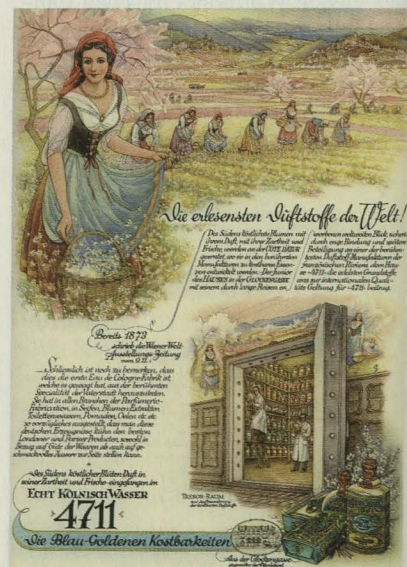 Die erlesensten Duftstoffe der Welt!
Des Südens köstlichste Blumen mit
ihrem Duft, mit ihrer Zartheit und
Frische, werden an der CÔTE D'AZUR
geerntet, wo sie in den berühmten
Manufakturen zu kostbaren Essen-
zen entwickelt werden. Der Junior
des HAUSES in der GLOCKENGASSE
mit seinem durch lange Reisen er-
worbenen weltweiten Blick, sichert
durch enge Bindung und spätere
Beteiligung an einer der berühm-
testen Duftstoff-Manufakturen der
französischen Riviera dem Hau-
se -4711- die edelsten Grundstoffe,
was zur internationalen Quali-
täts-Geltung für -4711- beitrug.
Bereits 1873
schrieb die Wiener Welt-
Ausstellungs-Zeitung
„... Schliesslich ist noch zu bemerken, dass
dies die erste Eau de Cologne-Fabrik ist,
welche es gewagt hat, aus der berühmten
Specialität der Vaterstadt herauszutreten.
Sie hat in allen Branchen der Parfumerie-
Fabrication, in Seifen, Blumen-Extraiten
Toilettenwassern, Pomaden, Oelen etc. etc.
so vorzügliches ausgestellt, dass man diese
deutschen Erzeugnisse kühn den besten
Londoner und Pariser Producten, sowohl in
Bezug auf Güte der Waaren als auch auf ge-
schmackvolles Äussere zur Seite stellen kann.
Des Südens köstlicher Blüten-Duft in
seiner Zartheit und Frische - eingefangen im
ECHT KÖLNISCH WASSER
4711
Die Blau-Goldenen Kostbarkeiten
TRESOR-RAUM
Aus der Glockengasse